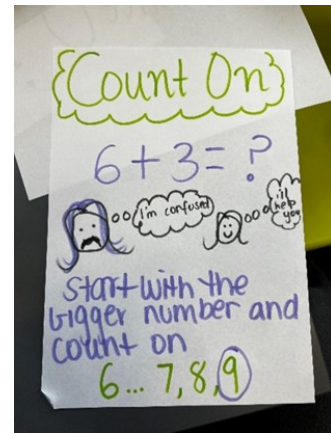 Count On
6+3=?
I'm confused
i'll help you
start with the
bigger number and
count on
6... 7,8,9